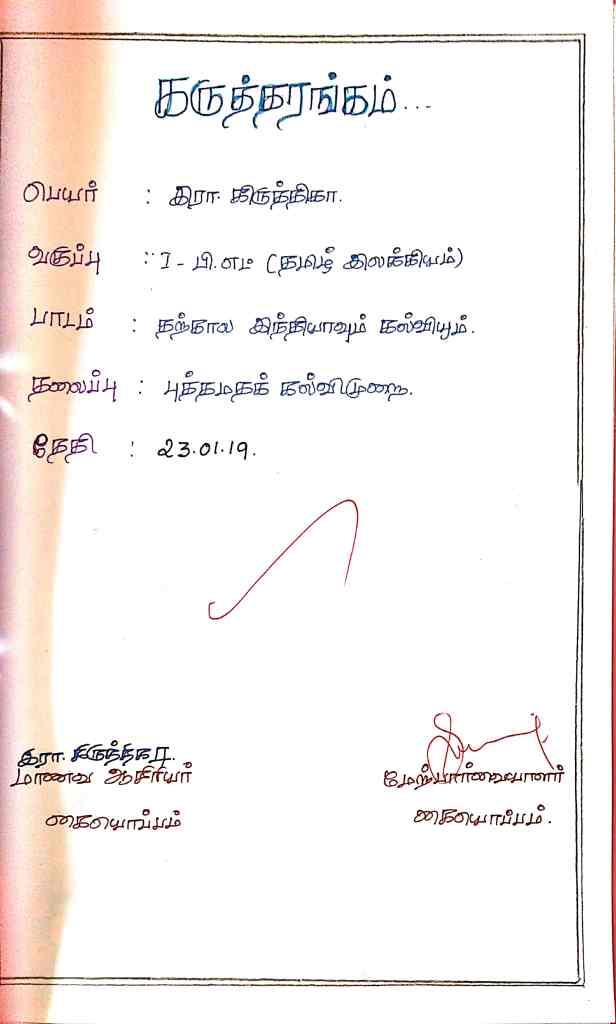 கருத்தரங்கம்...
பெயர் : இரா. கிருத்திகா.
வகுப்பு : I - பி.எட் (தமிழ் இலக்கியம்)
பாடம் : தற்கால இந்தியாவும் கல்வியும்.
தலைப்பு : புத்தமதக் கல்விமுறை.
தேதி : 23.01.19.
இரா. கிருத்திகா.
மாணவ ஆசிரியர்
மேற்பார்வையாளர்
கையொப்பம்
கையொப்பம்.